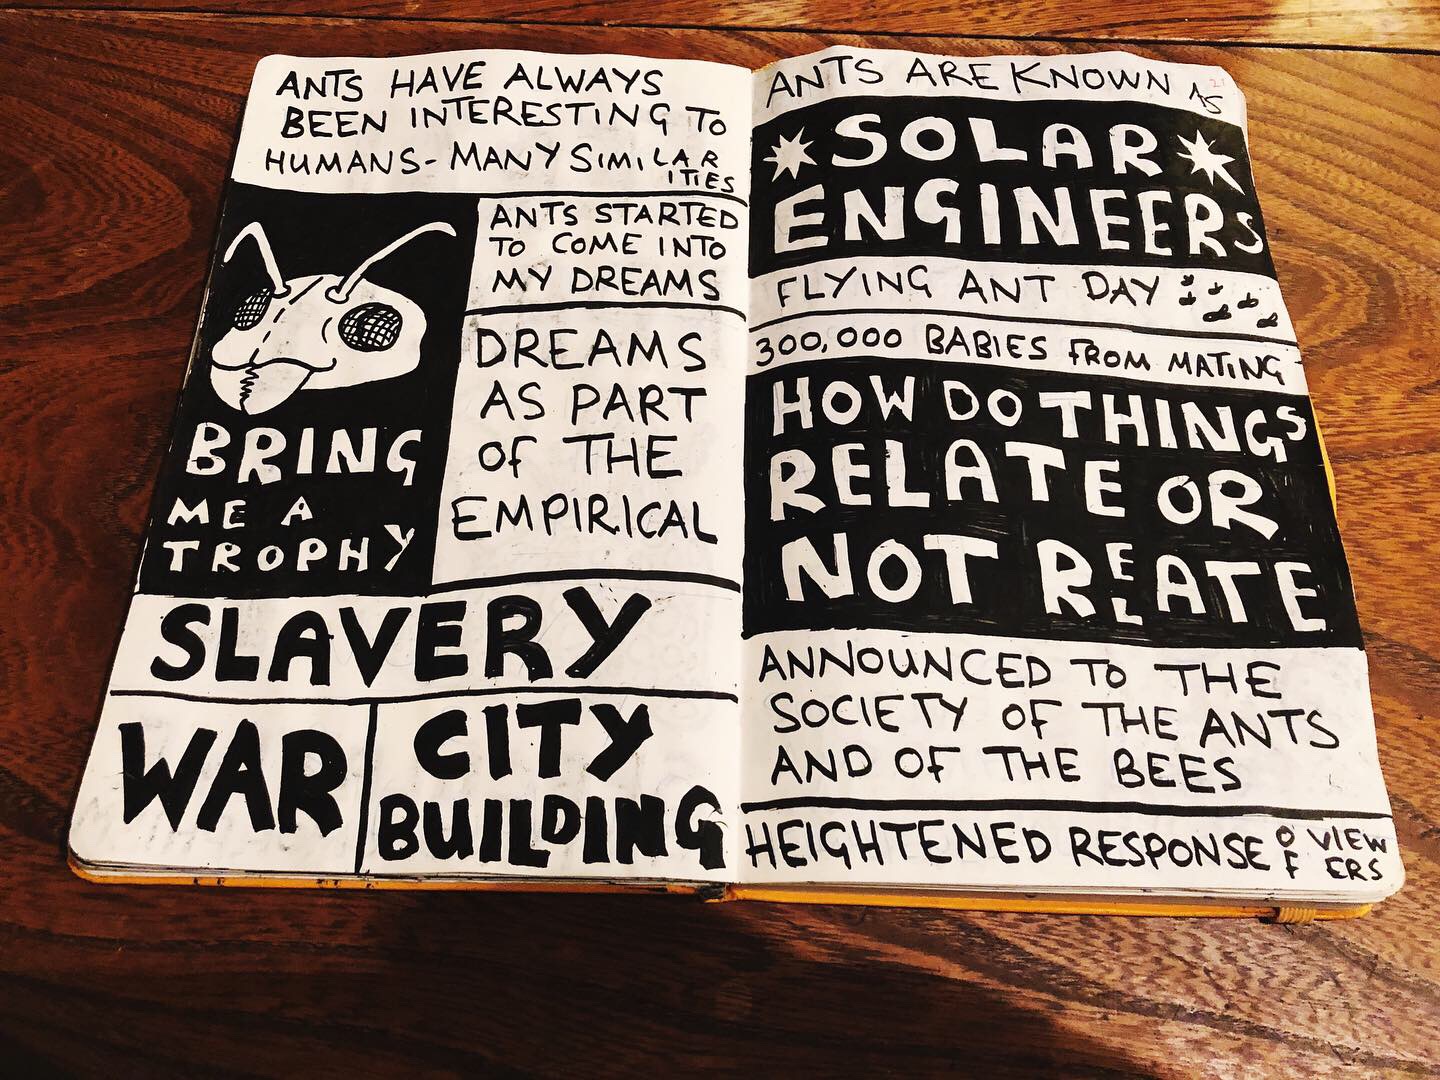 ANTS HAVE ALWAYS
BEEN INTERESTING TO
HUMANS - MANY SIMILAR
ITIES
ANTS STARTED
TO COME INTO
MY DREAMS
DREAMS
AS PART
OF THE
EMPIRICAL
BRING
ME A
TROPHY
SLAVERY
WAR
CITY
BUILDING
ANTS ARE KNOWN AS
21
SOLAR
ENGINEERS
FLYING ANT DAY
300,000 BABIES FROM MATING
HOW DO THINGS
RELATE OR
NOT RELATE
ANNOUNCED TO THE
SOCIETY OF THE ANTS
AND OF THE BEES
HEIGHTENED RESPONSE OF VIEW
ERS